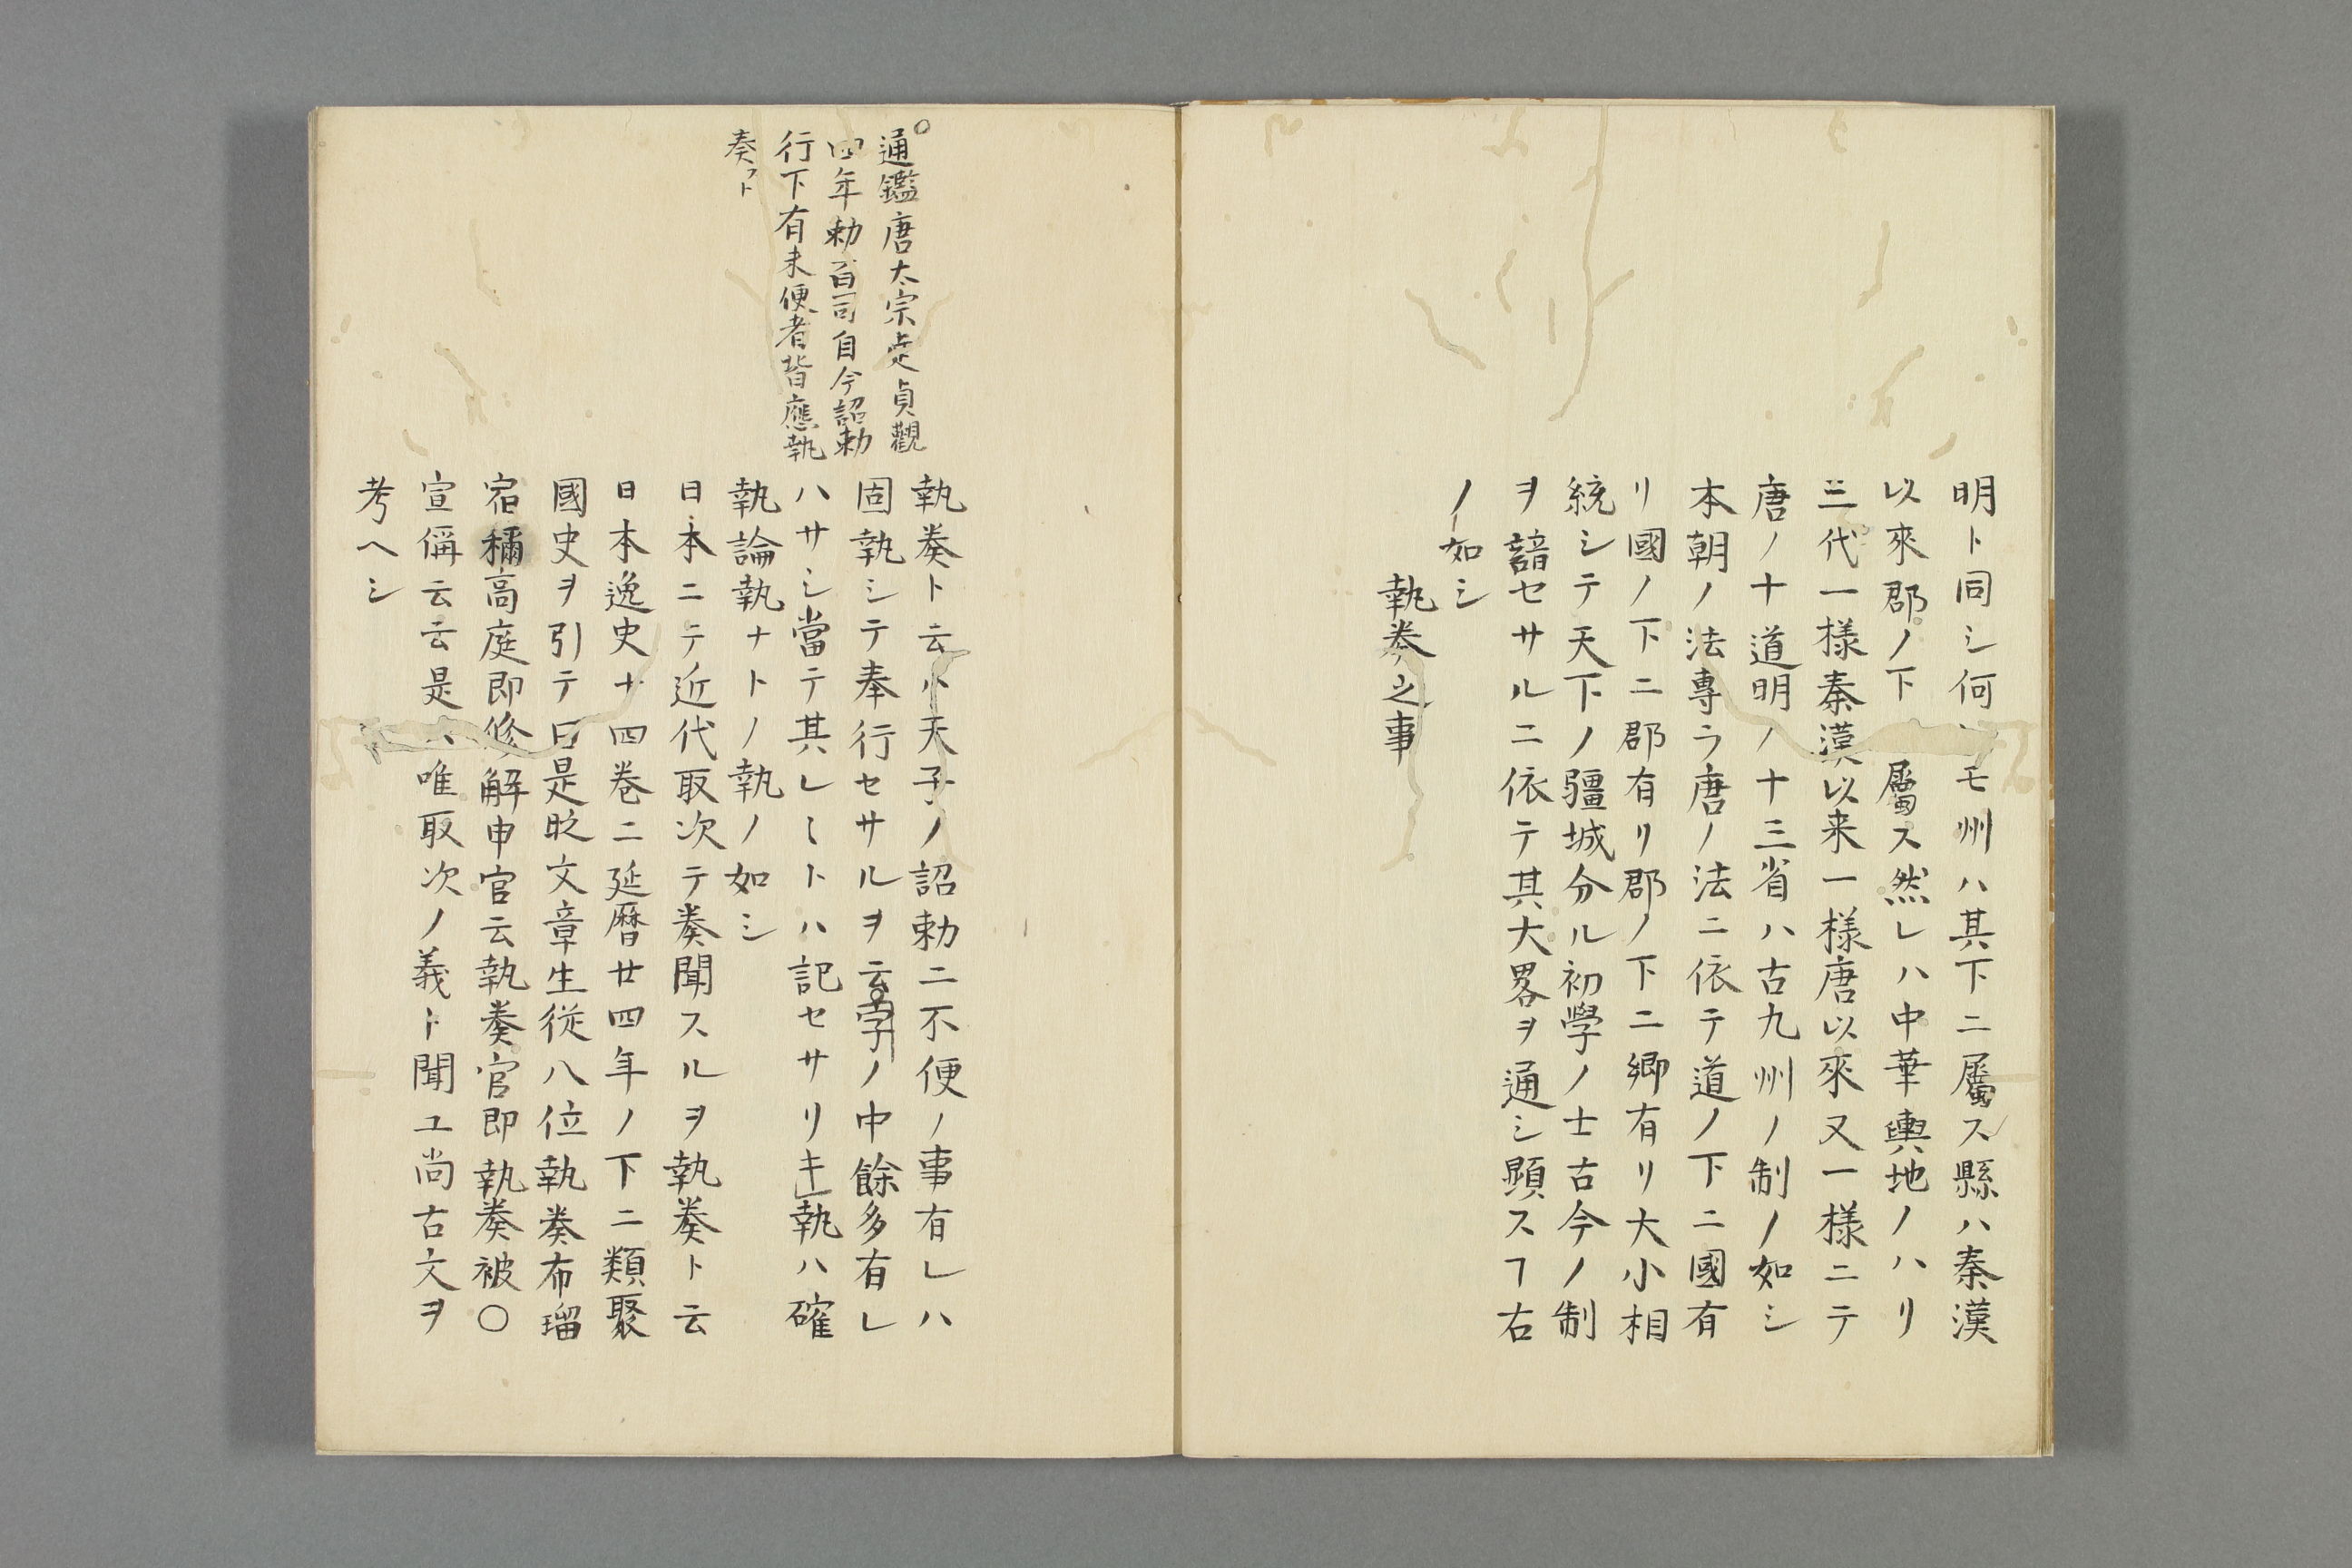 明ト同シ何レモ州ハ其下ニ屬ス縣ハ秦漢
以來郡ノ下ニ屬ス然レハ中華輿地ノハリ
三代一樣秦漢以来一樣唐以來又一樣ニテ
唐ノ十道明ノ十三省ハ古九州ノ制ノ如シ
本朝ノ法專ラ唐ノ法ニ依テ道ノ下ニ國有
リ國ノ下ニ郡有リ郡ノ下ニ郷有リ大小相
統シテ天下ノ疆城分ル初學ノ士古今ノ制
ヲ諳セサルニ依テ其大畧ヲ通シ顕スヿ右
ノ如シ
執奏之事
○通鑑唐太宗定貞觀
四年勅百司自今詔勅
行下有未便者皆應執
奏ヿト
執奏ト云ハ天子ノ詔勅ニ不便ノ事有レハ
固執シテ奉行セサルヲ云字ノ中餘多有レ
ハサシ當テ其レ〱トハ記セサリキ執ハ確
執論執ナトノ執ノ如シ
日本ニテ近代取次テ奏聞スルヲ執奏ト云
日本逸史十四巻ニ延暦廿四年ノ下ニ類聚
國史ヲ引テ曰是昃文章生従八位執奏布瑠
宿禰高庭即修解申官云執奏官即執奏被〇
宣偁云云是ハ唯取次ノ義ト聞ユ尚古文ヲ
考ヘシ